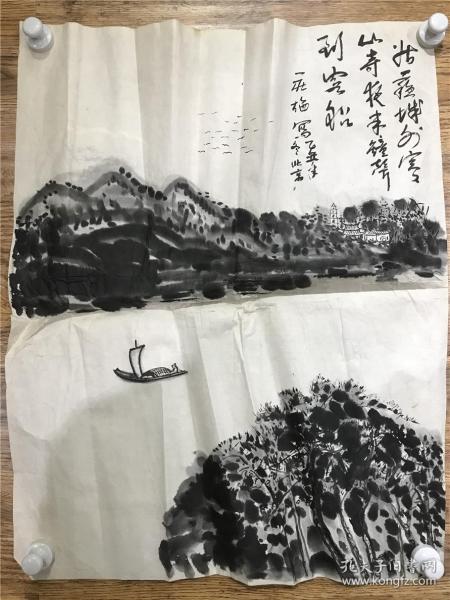 姑蘇城外寒
山寺夜半鐘聲
到客船
孔夫子旧书网
www.kongfz.com